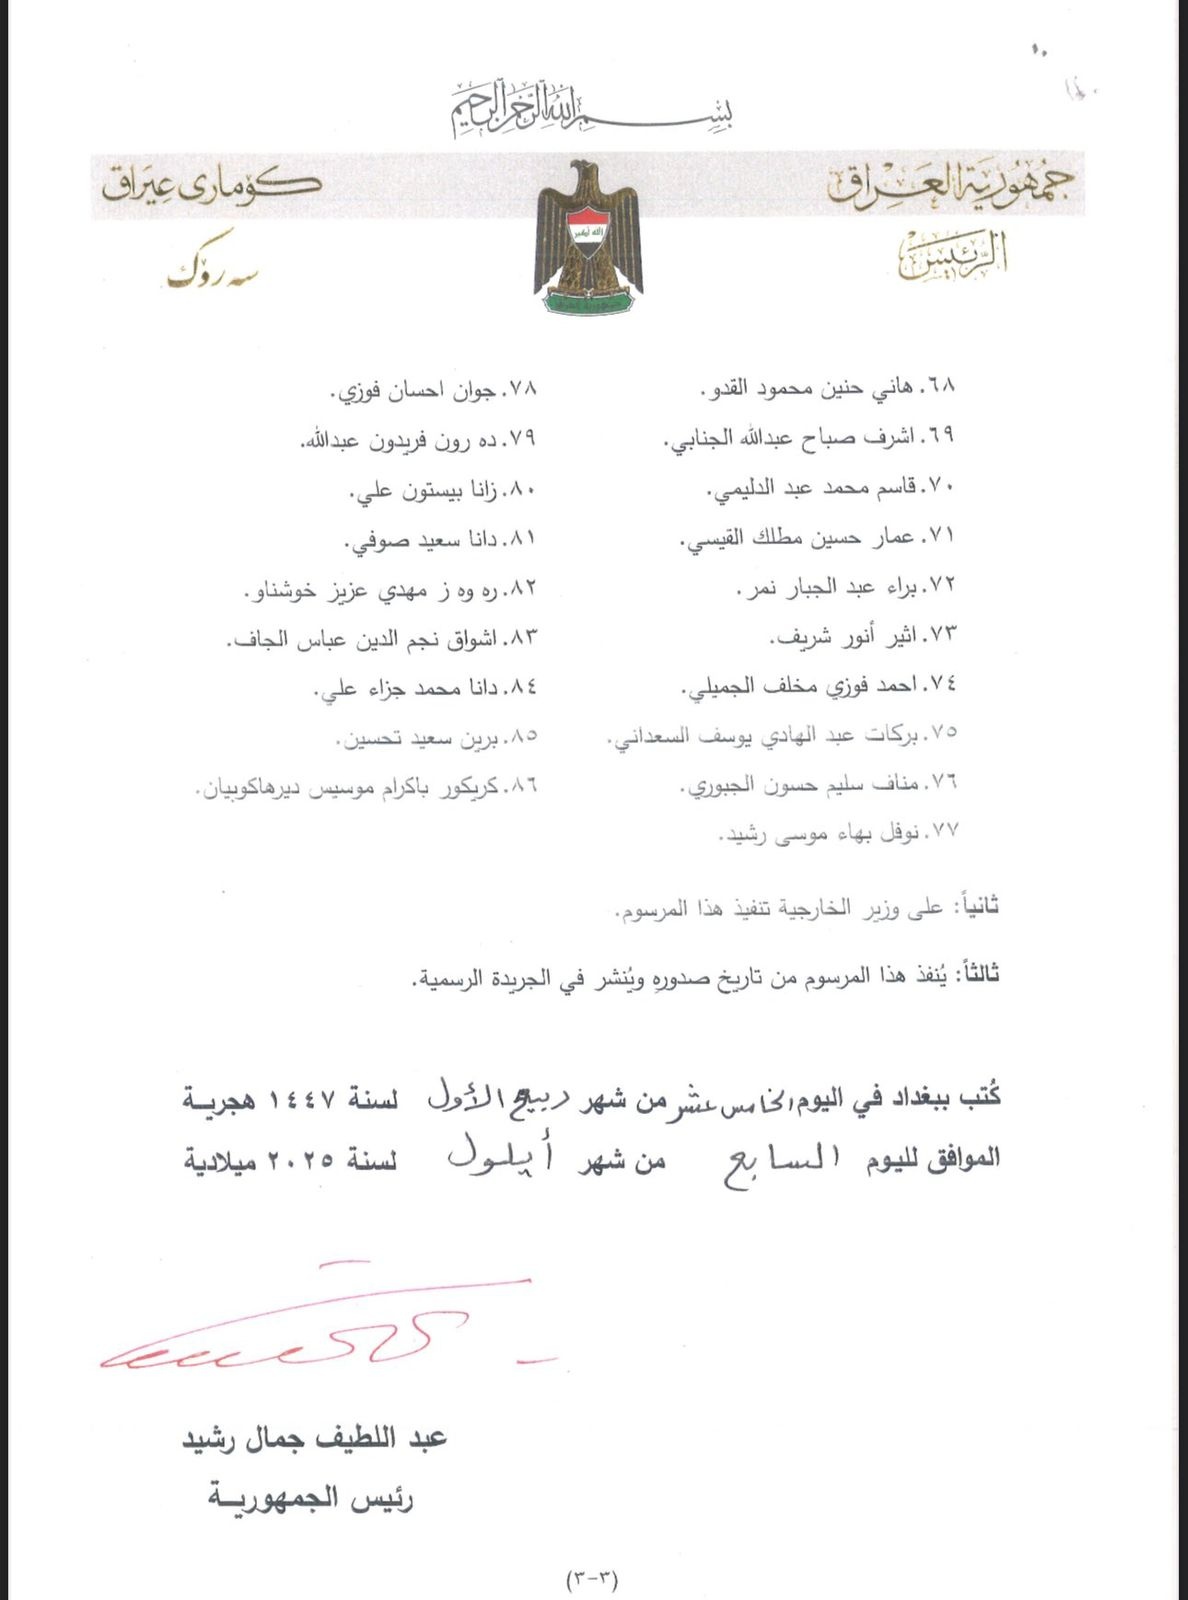 ١٠
بسم الله الرحمن الرحيم
جمهورية العراق
كۆماری عێراق
الرئيس
سەرۆک
الله أكبر
جمهورية العراق
٦٨. هاني حنين محمود القدو.
٦٩. اشرف صباح عبدالله الجنابي.
٧٠. قاسم محمد عبد الدليمي.
٧١. عمار حسين مطلك القيسي.
٧٢. براء عبد الجبار نمر.
٧٣. اثير أنور شريف.
٧٤. احمد فوزي مخلف الجميلي.
٧٥. بركات عبد الهادي يوسف السعداني.
٧٦. مناف سليم حسون الجبوري.
٧٧. نوفل بهاء موسى رشيد.
٧٨. جوان احسان فوزي.
٧٩. ده رون فريدون عبدالله.
٨٠. زانا بيستون علي.
٨١. دانا سعيد صوفي.
٨٢. ره وه ز مهدي عزيز خوشناو.
٨٣. اشواق نجم الدين عباس الجاف.
٨٤. دانا محمد جزاء علي.
٨٥. برين سعيد تحسين.
٨٦. كريكور باكرام موسيس ديرهاكوبيان.
ثانياً: على وزير الخارجية تنفيذ هذا المرسوم.
ثالثاً: يُنفذ هذا المرسوم من تاريخ صدوره ويُنشر في الجريدة الرسمية.
كُتب ببغداد في اليوم الخامس عشر من شهر ربيع الأول لسنة ١٤٤٧ هجرية
الموافق لليوم السابع من شهر أيلول لسنة ٢٠٢٥ ميلادية
عبد اللطيف جمال رشيد
رئيس الجمهوريـة
(٣-٣)